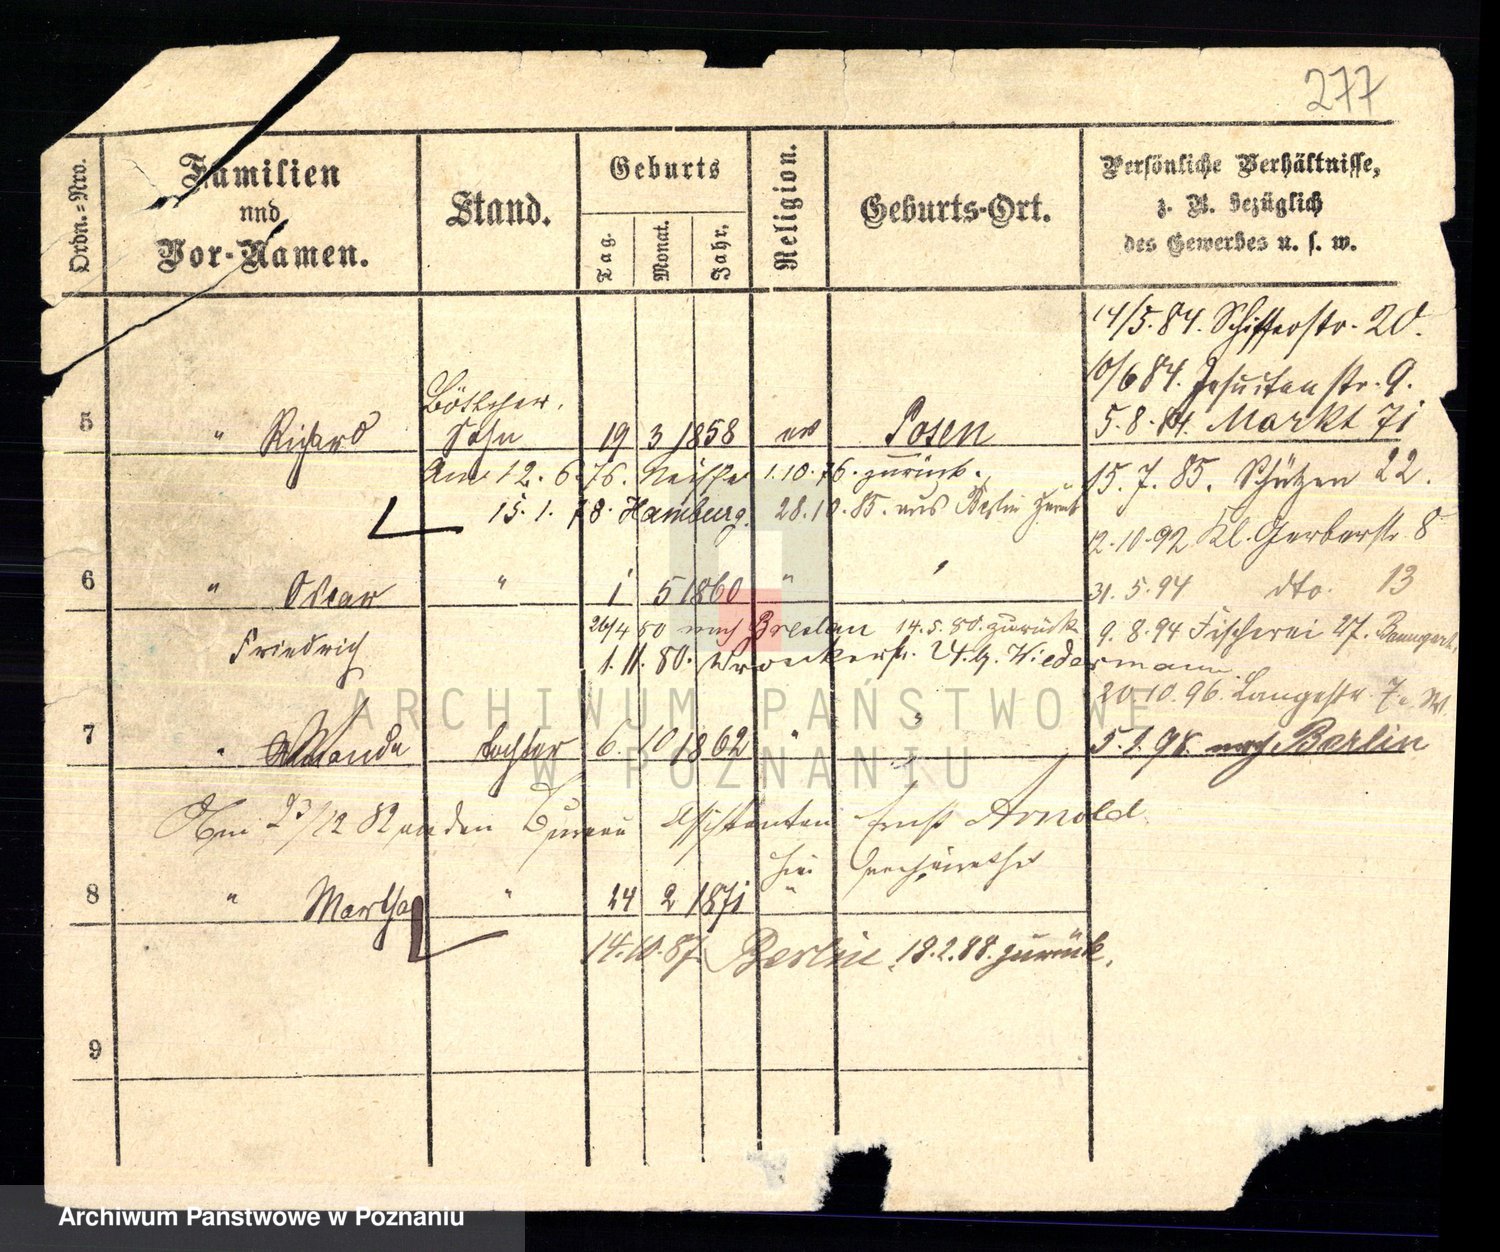 277
Ordn.=Nro.
Familien
und
Vor-Namen.
Stand.
Geburts
Tag.
Monat.
Jahr.
Religion.
Geburts-Ort.
Persönliche Verhältnisse,
z. B. bezüglich
des Gewerbes u. s. w.
14/5. 84. Schifferstr. 20.
10/6 84. Jesuitenstr. 9.
5. 8. 84. Markt 71
Böttcher.
5 " Richard Sohn 19 3 1858 ev Posen
Am 12. 6. 76. Neisse 1. 10. 76. zurück.
15. 7. 85. Schützen 22.
15. 1. 78. Hamburg. 28. 10. 85. aus Berlin zurück
12. 10. 92 Kl. Gerberstr. 8
6 " Oscar " 1 5 1860 " "
31. 5. 94 dto. 13
Friedrich
26/4 80 nach Breslau 14. 5. 80. zurück
9. 8. 94 Fischerei 27.
1. 11. 80. Wronkerstr. 24. b. Wiedermann
20. 10. 96. Langestr 7.
7 " Amanda Tochter 6 10 1862 " "
5. 1. 98. nach Berlin
Am 23/12 82 an den Bureau Assistenten Ernst Arnold
hier verheirathet
8 " Martha " 24 2 1871 "
14. 10. 87. Berlin, 18. 2. 88. zurück.
9
ARCHIWUM PAŃSTWOWE
W POZNANIU
Archiwum Państwowe w Poznaniu